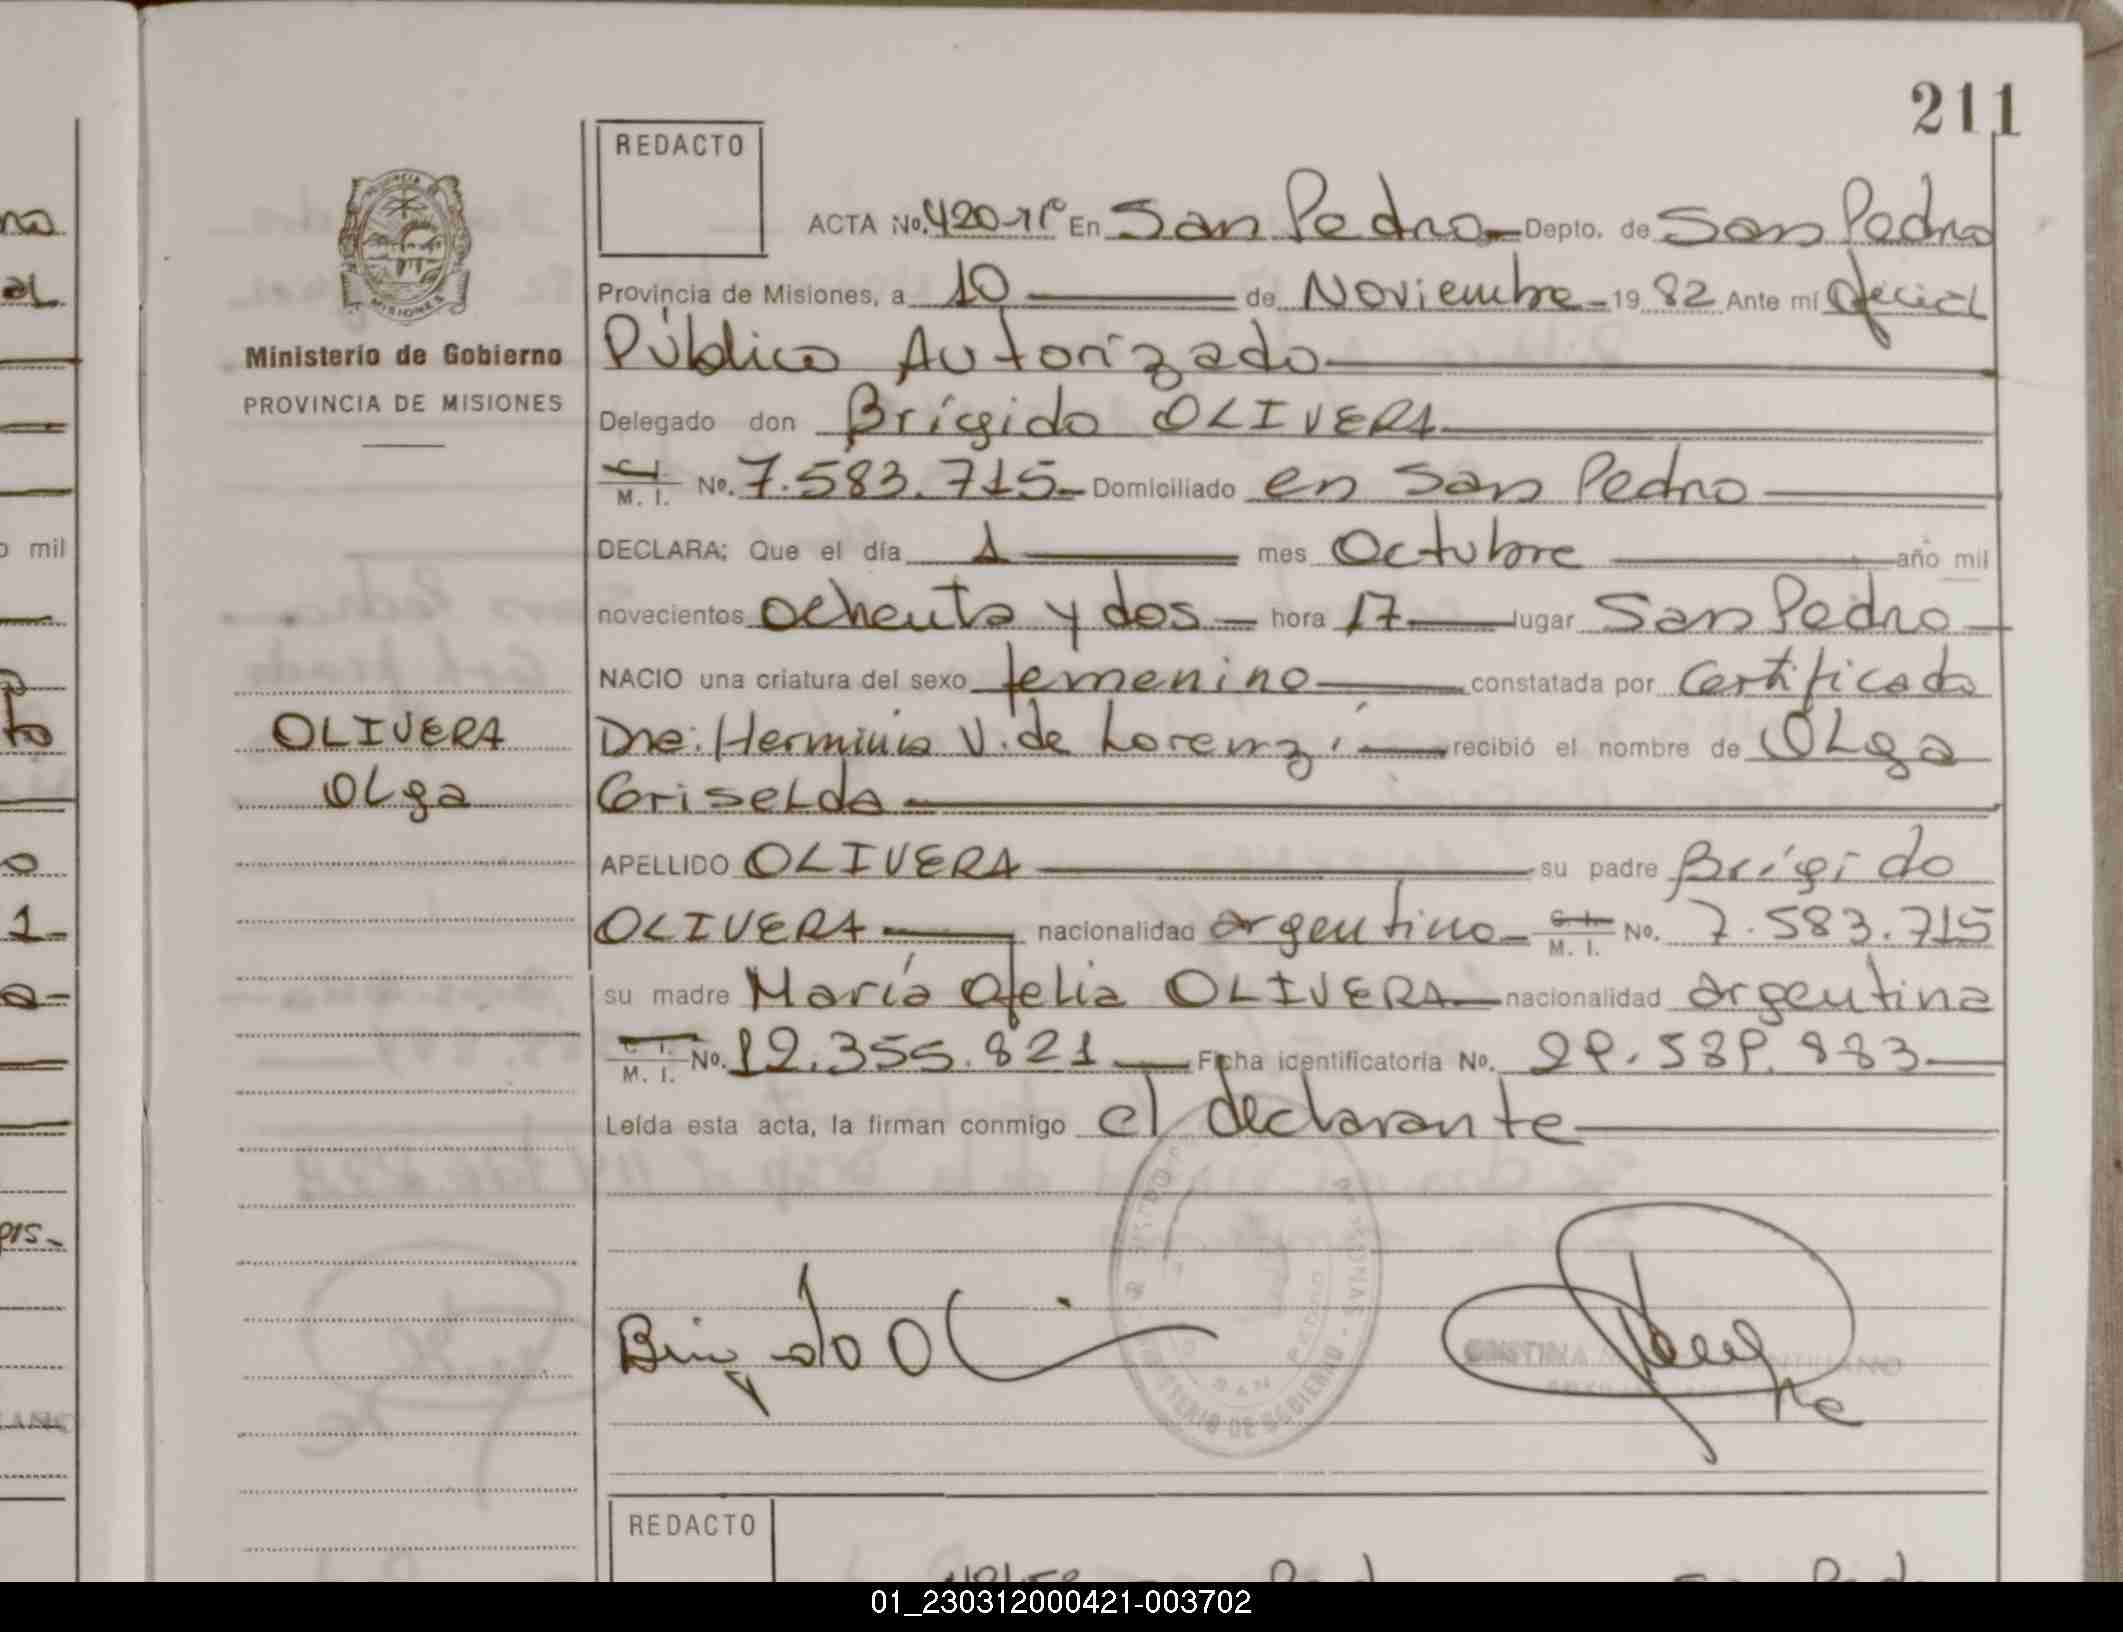 211
REDACTO
ACTA No. 420-Tº En San Pedro Depto. de San Pedro
Provincia de Misiones, a 10 de Noviembre 1982 Ante mí Oficial
Público Autorizado
Ministerio de Gobierno
PROVINCIA DE MISIONES
Delegado don Brígido OLIVERA
C. I. M. I. No. 7.583.715 Domiciliado en San Pedro
DECLARA; Que el día 1 mes Octubre año mil
novecientos ochenta y dos hora 17 lugar San Pedro
NACIO una criatura del sexo femenino constatada por Certificado
Dra: Herminia V. de Lorenzi recibió el nombre de Olga
Griselda
OLIVERA
Olga
APELLIDO OLIVERA su padre Brígido
OLIVERA nacionalidad argentino C. I. M. I. No. 7.583.715
su madre María Ofelia OLIVERA nacionalidad argentina
C. I. M. I. No. 12.355.821 Ficha identificatoria No. 29.589.883
Leída esta acta, la firman conmigo el declarante
Brigido
MINISTERIO DE GOBIERNO
SAN PEDRO
REDACTO
01_230312000421-003702